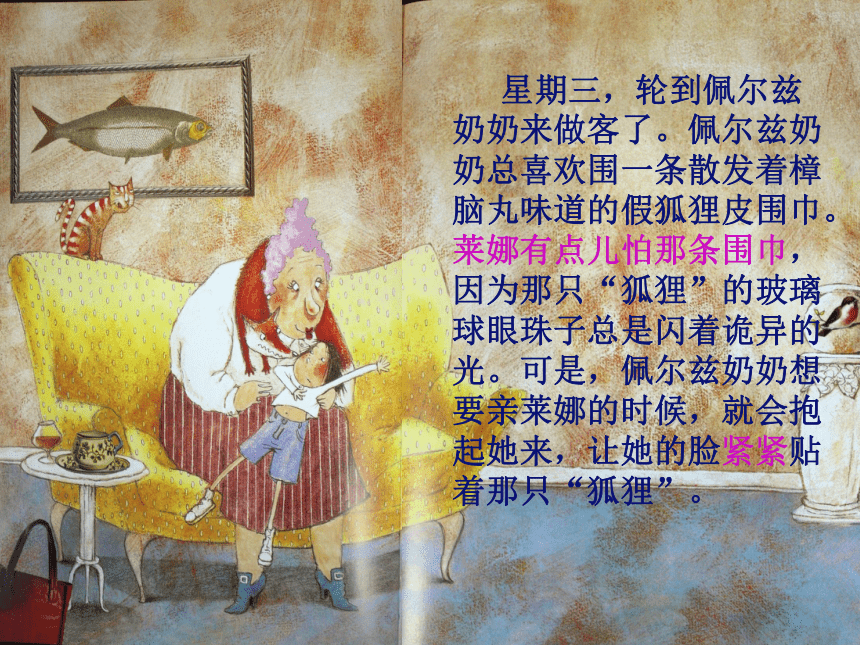 星期三，轮到佩尔兹
奶奶来做客了。佩尔兹奶
奶总喜欢围一条散发着樟
脑丸味道的假狐狸皮围巾。
莱娜有点儿怕那条围巾，
因为那只“狐狸”的玻璃
球眼珠子总是闪着诡异的
光。可是，佩尔兹奶奶想
要亲莱娜的时候，就会抱
起她来，让她的脸紧紧贴
着那只“狐狸”。